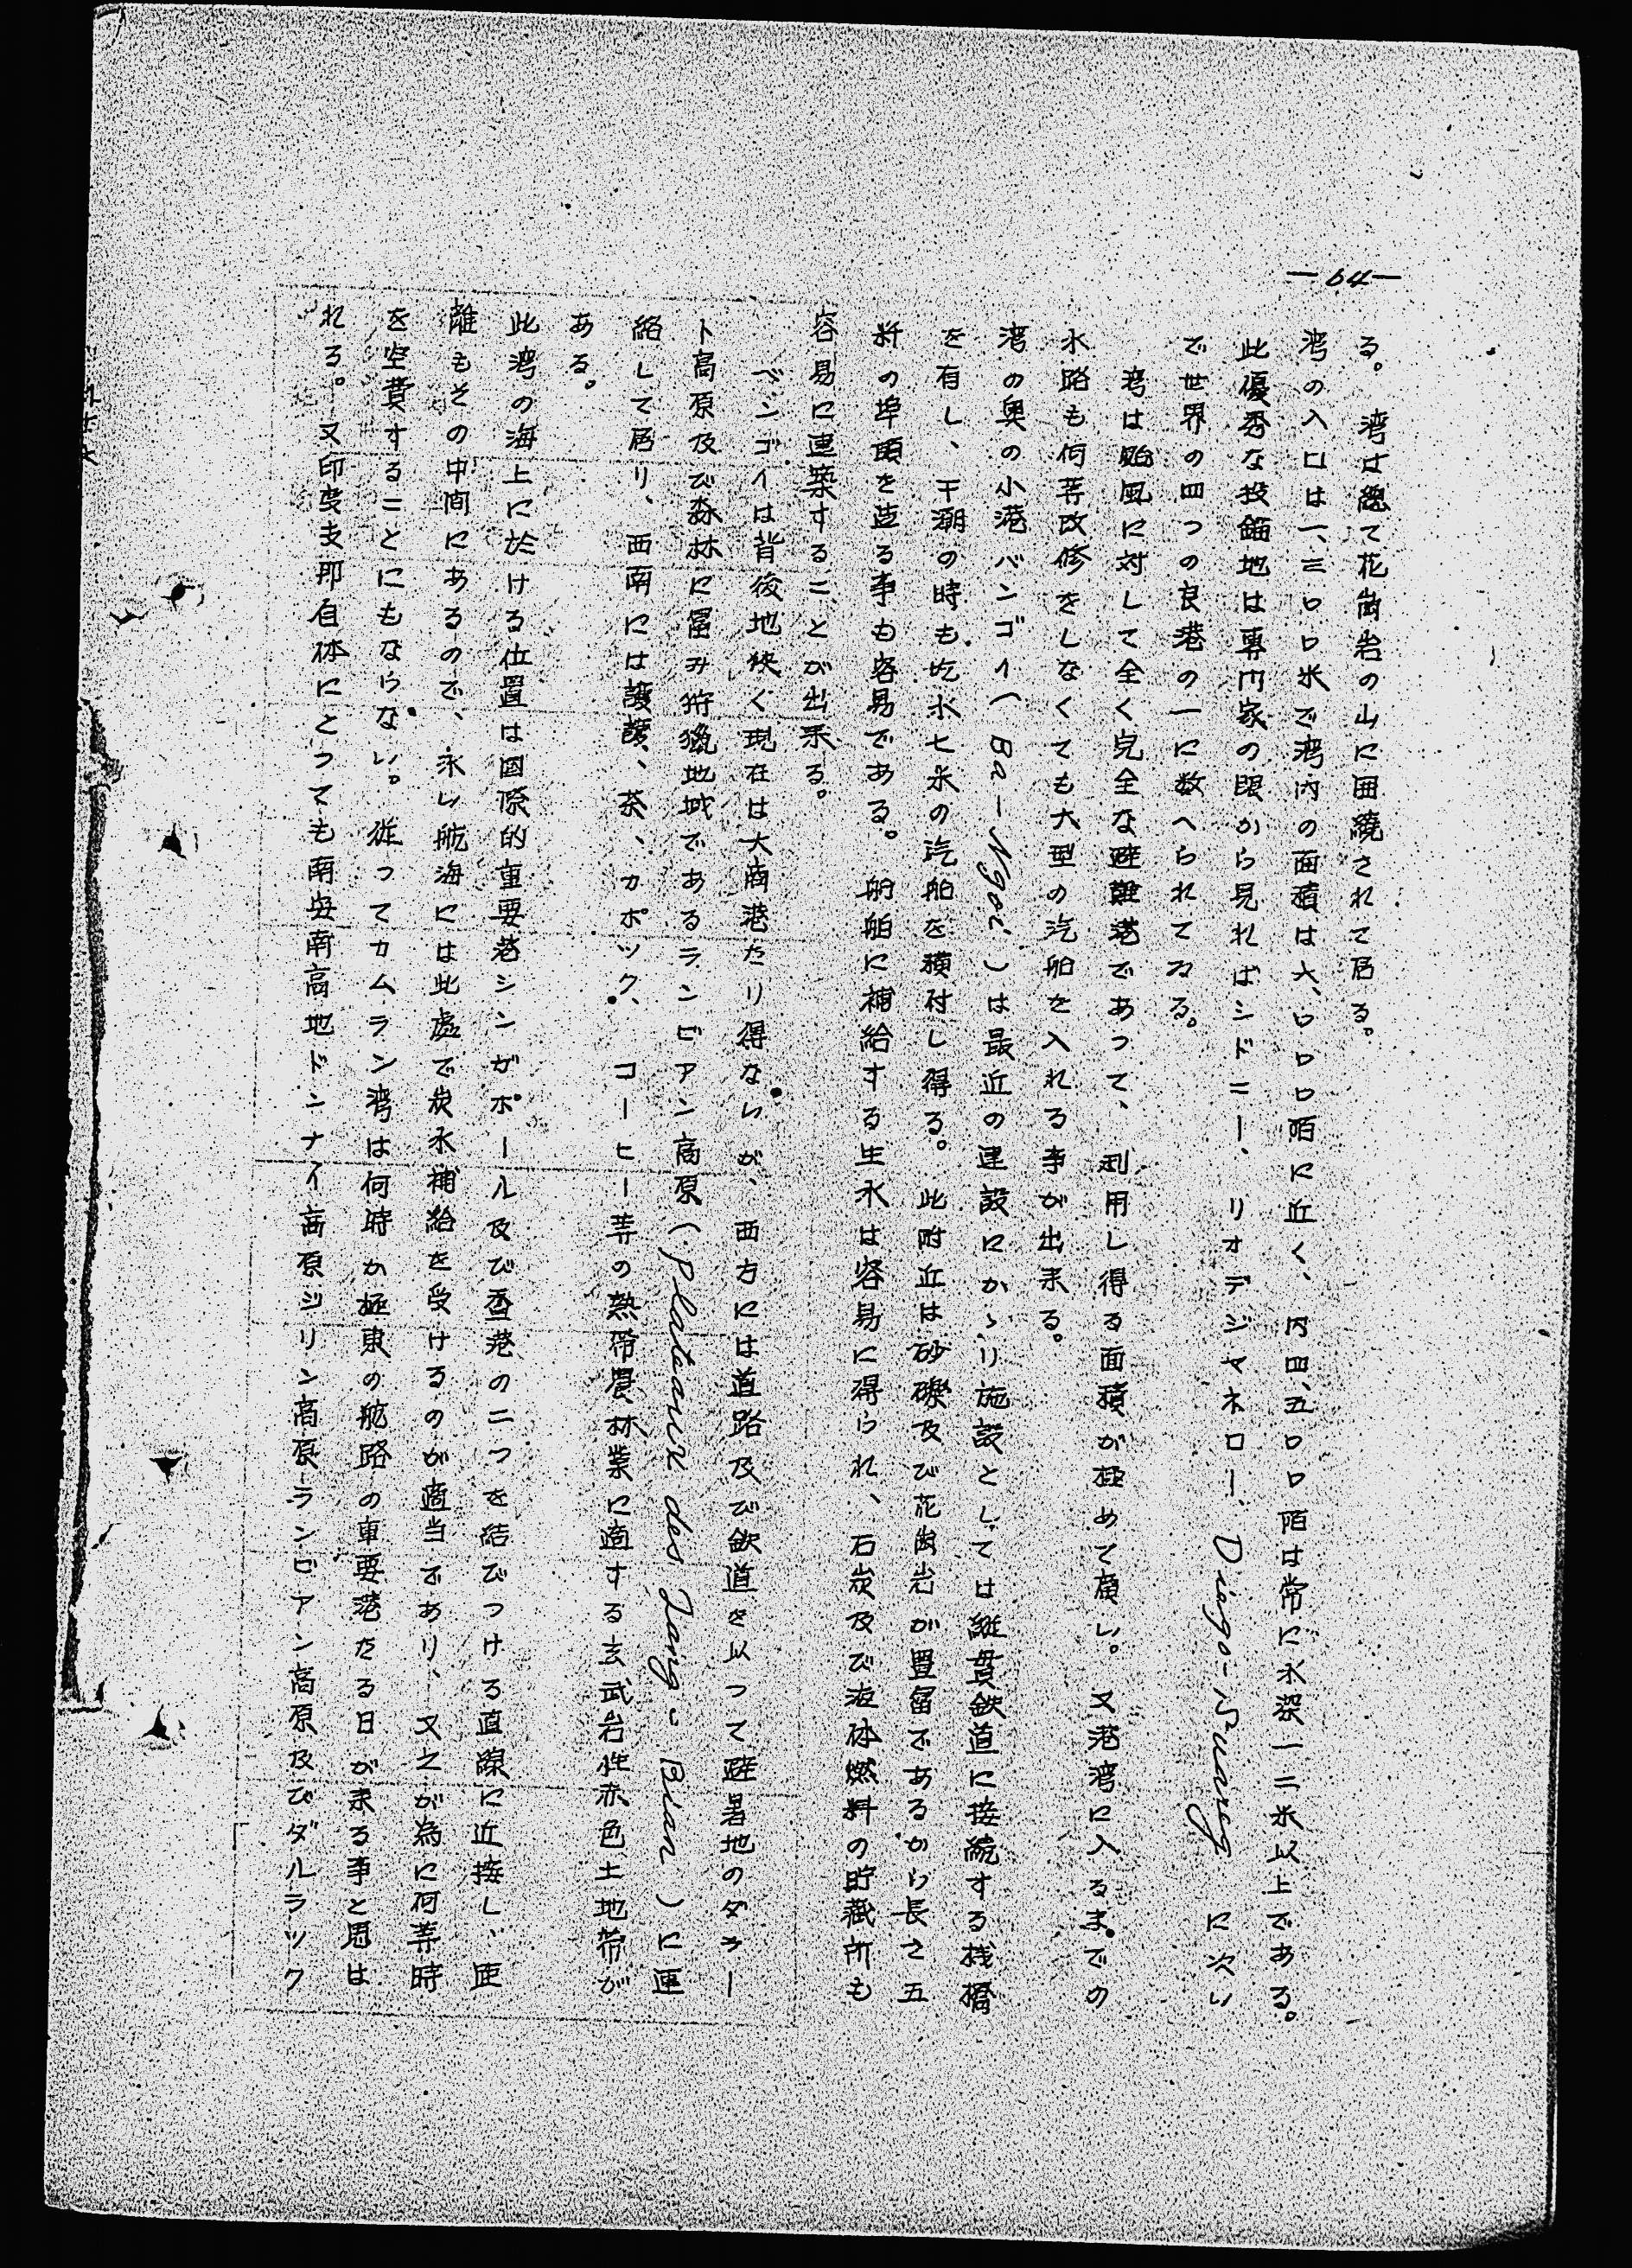 —64—
る。湾は總て花崗岩の山に囲繞されて居る。
湾の入口は一、三〇〇米で湾内の面積は六、〇〇〇陌に近く、内四、五〇〇陌は常に水深一二米以上である。
此優秀な投錨地は専門家の眼から見ればシドニー、リオデジャネロー、Diego-Suarez に次い
で世界の四つの良港の一に数へられてゐる。
湾は颱風に対して全く完全な避難港であって、利用し得る面積が極めて広い。又港湾に入るまでの
水路も何等改修をしなくても大型の汽船を入れる事が出来る。
湾の奥の小港バンゴイ(Ba-Ngoi)は最近の建設にかゝり施設としては縦貫鉄道に接続する桟橋
を有し、干潮の時も吃水七米の汽船を横付し得る。此附近は砂礫及び花崗岩が豊富であるから長さ五
〇〇米の埠頭を造る事も容易である。船舶に補給する生水は容易に得られ、石炭及び液体燃料の貯蔵所も
容易に建築することが出来る。
バンゴイは背後地狭く現在は大商港たり得ないが、西方には道路及び鉄道を以って避暑地のダラー
ト高原及び森林に富み狩猟地域であるランビアン高原(Plateaux des Lang-Bian)に連
絡して居り、西南には護謨、茶、カポック、コーヒー等の熱帯農林業に適する玄武岩性赤色土地帯が
ある。
此湾の海上に於ける位置は国際的重要港シンガポール及び香港の二つを結びつける直線に近接し、距
離もその中間にあるので、永い航海には此處で炭水補給を受けるのが適当であり、又之が為に何等時
を空費することにもならない。従ってカムラン湾は何時か極東の航路の重要港たる日が来る事と思は
れる。又印度支那自体にとっても南安南高地ドンナイ高原ジリン高原ランビアン高原及びダルラック